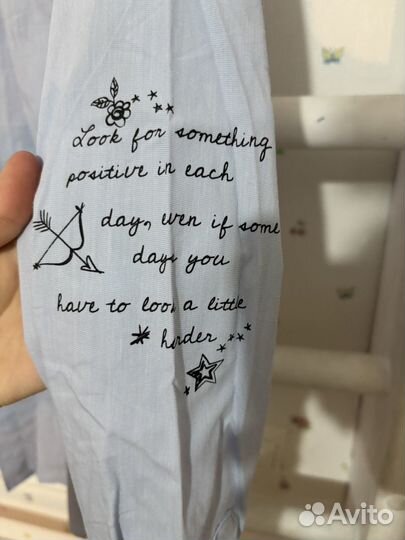 Look for something
positive in each
day, even if some
days you
have to look a little
* harder
Avito